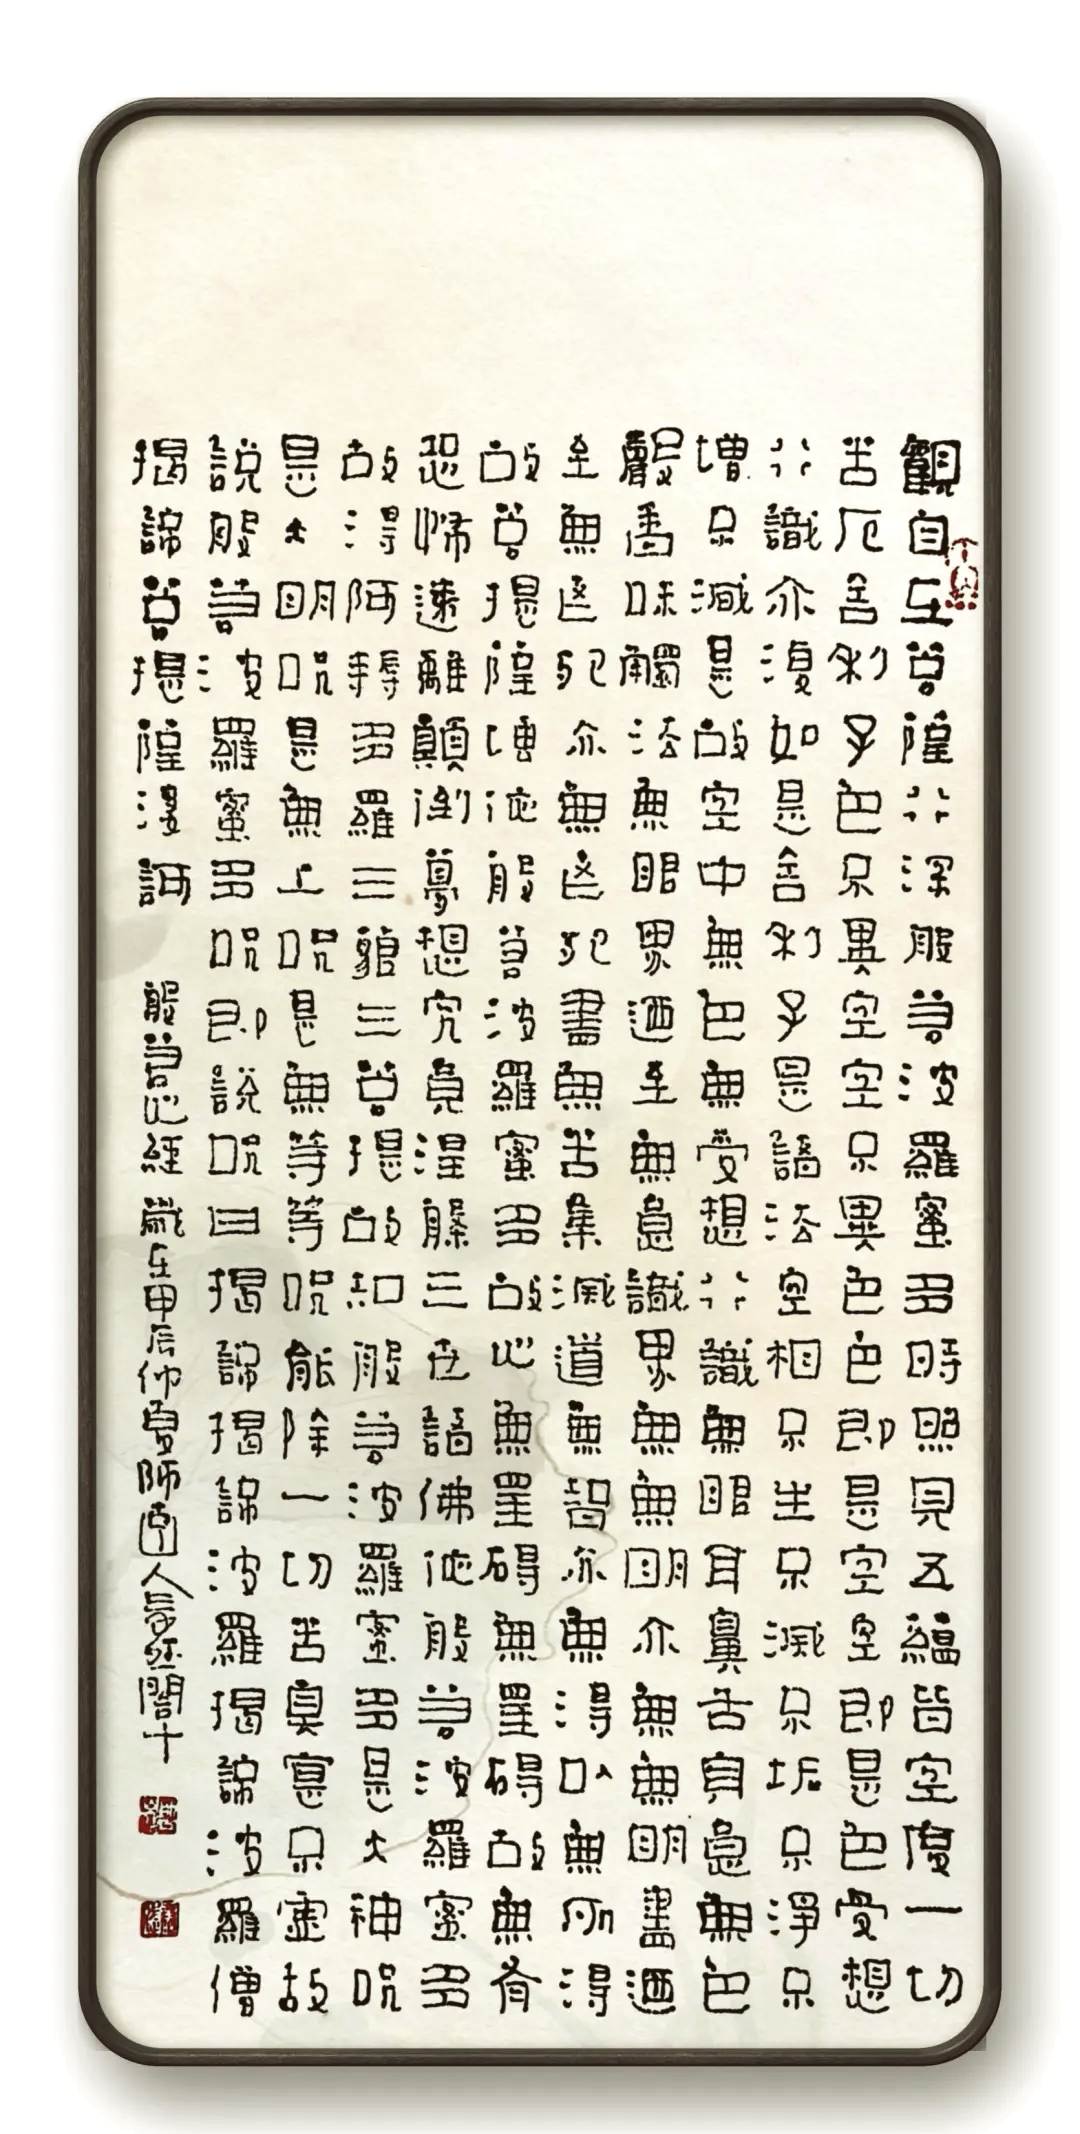 觀自在菩薩行深般若波羅蜜多時照見五蘊皆空度一切
苦厄舍利子色不異空空不異色色即是空空即是色受想
行識亦復如是舍利子是諸法空相不生不滅不垢不淨不
增不減是故空中無色無受想行識無眼耳鼻舌身意無色
聲香味觸法無眼界迺至無意識界無無明亦無無明盡迺
至無老死亦無老死盡無苦集滅道無智亦無得以無所得
故菩提薩埵依般若波羅蜜多故心無罣礙無罣礙故無有
恐怖遠離顛倒夢想究竟涅槃三世諸佛依般若波羅蜜多
故得阿耨多羅三藐三菩提故知般若波羅蜜多是大神咒
是大明咒是無上咒是無等等咒能除一切苦真實不虛故
說般若波羅蜜多咒即說咒曰揭諦揭諦波羅揭諦波羅僧
揭諦菩提薩婆訶
般若心經 歲在甲辰仲夏師